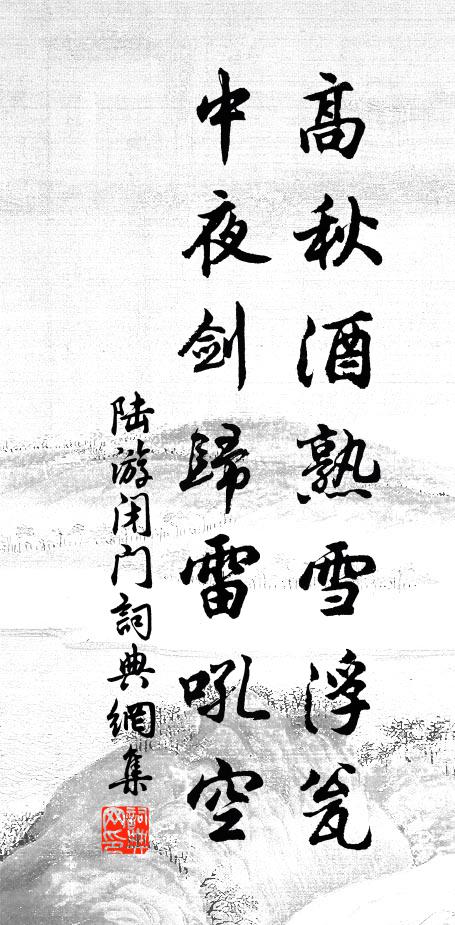 高秋酒熟雪浮瓮
中夜剑歸雷吼空
陆游闭门詞典網集